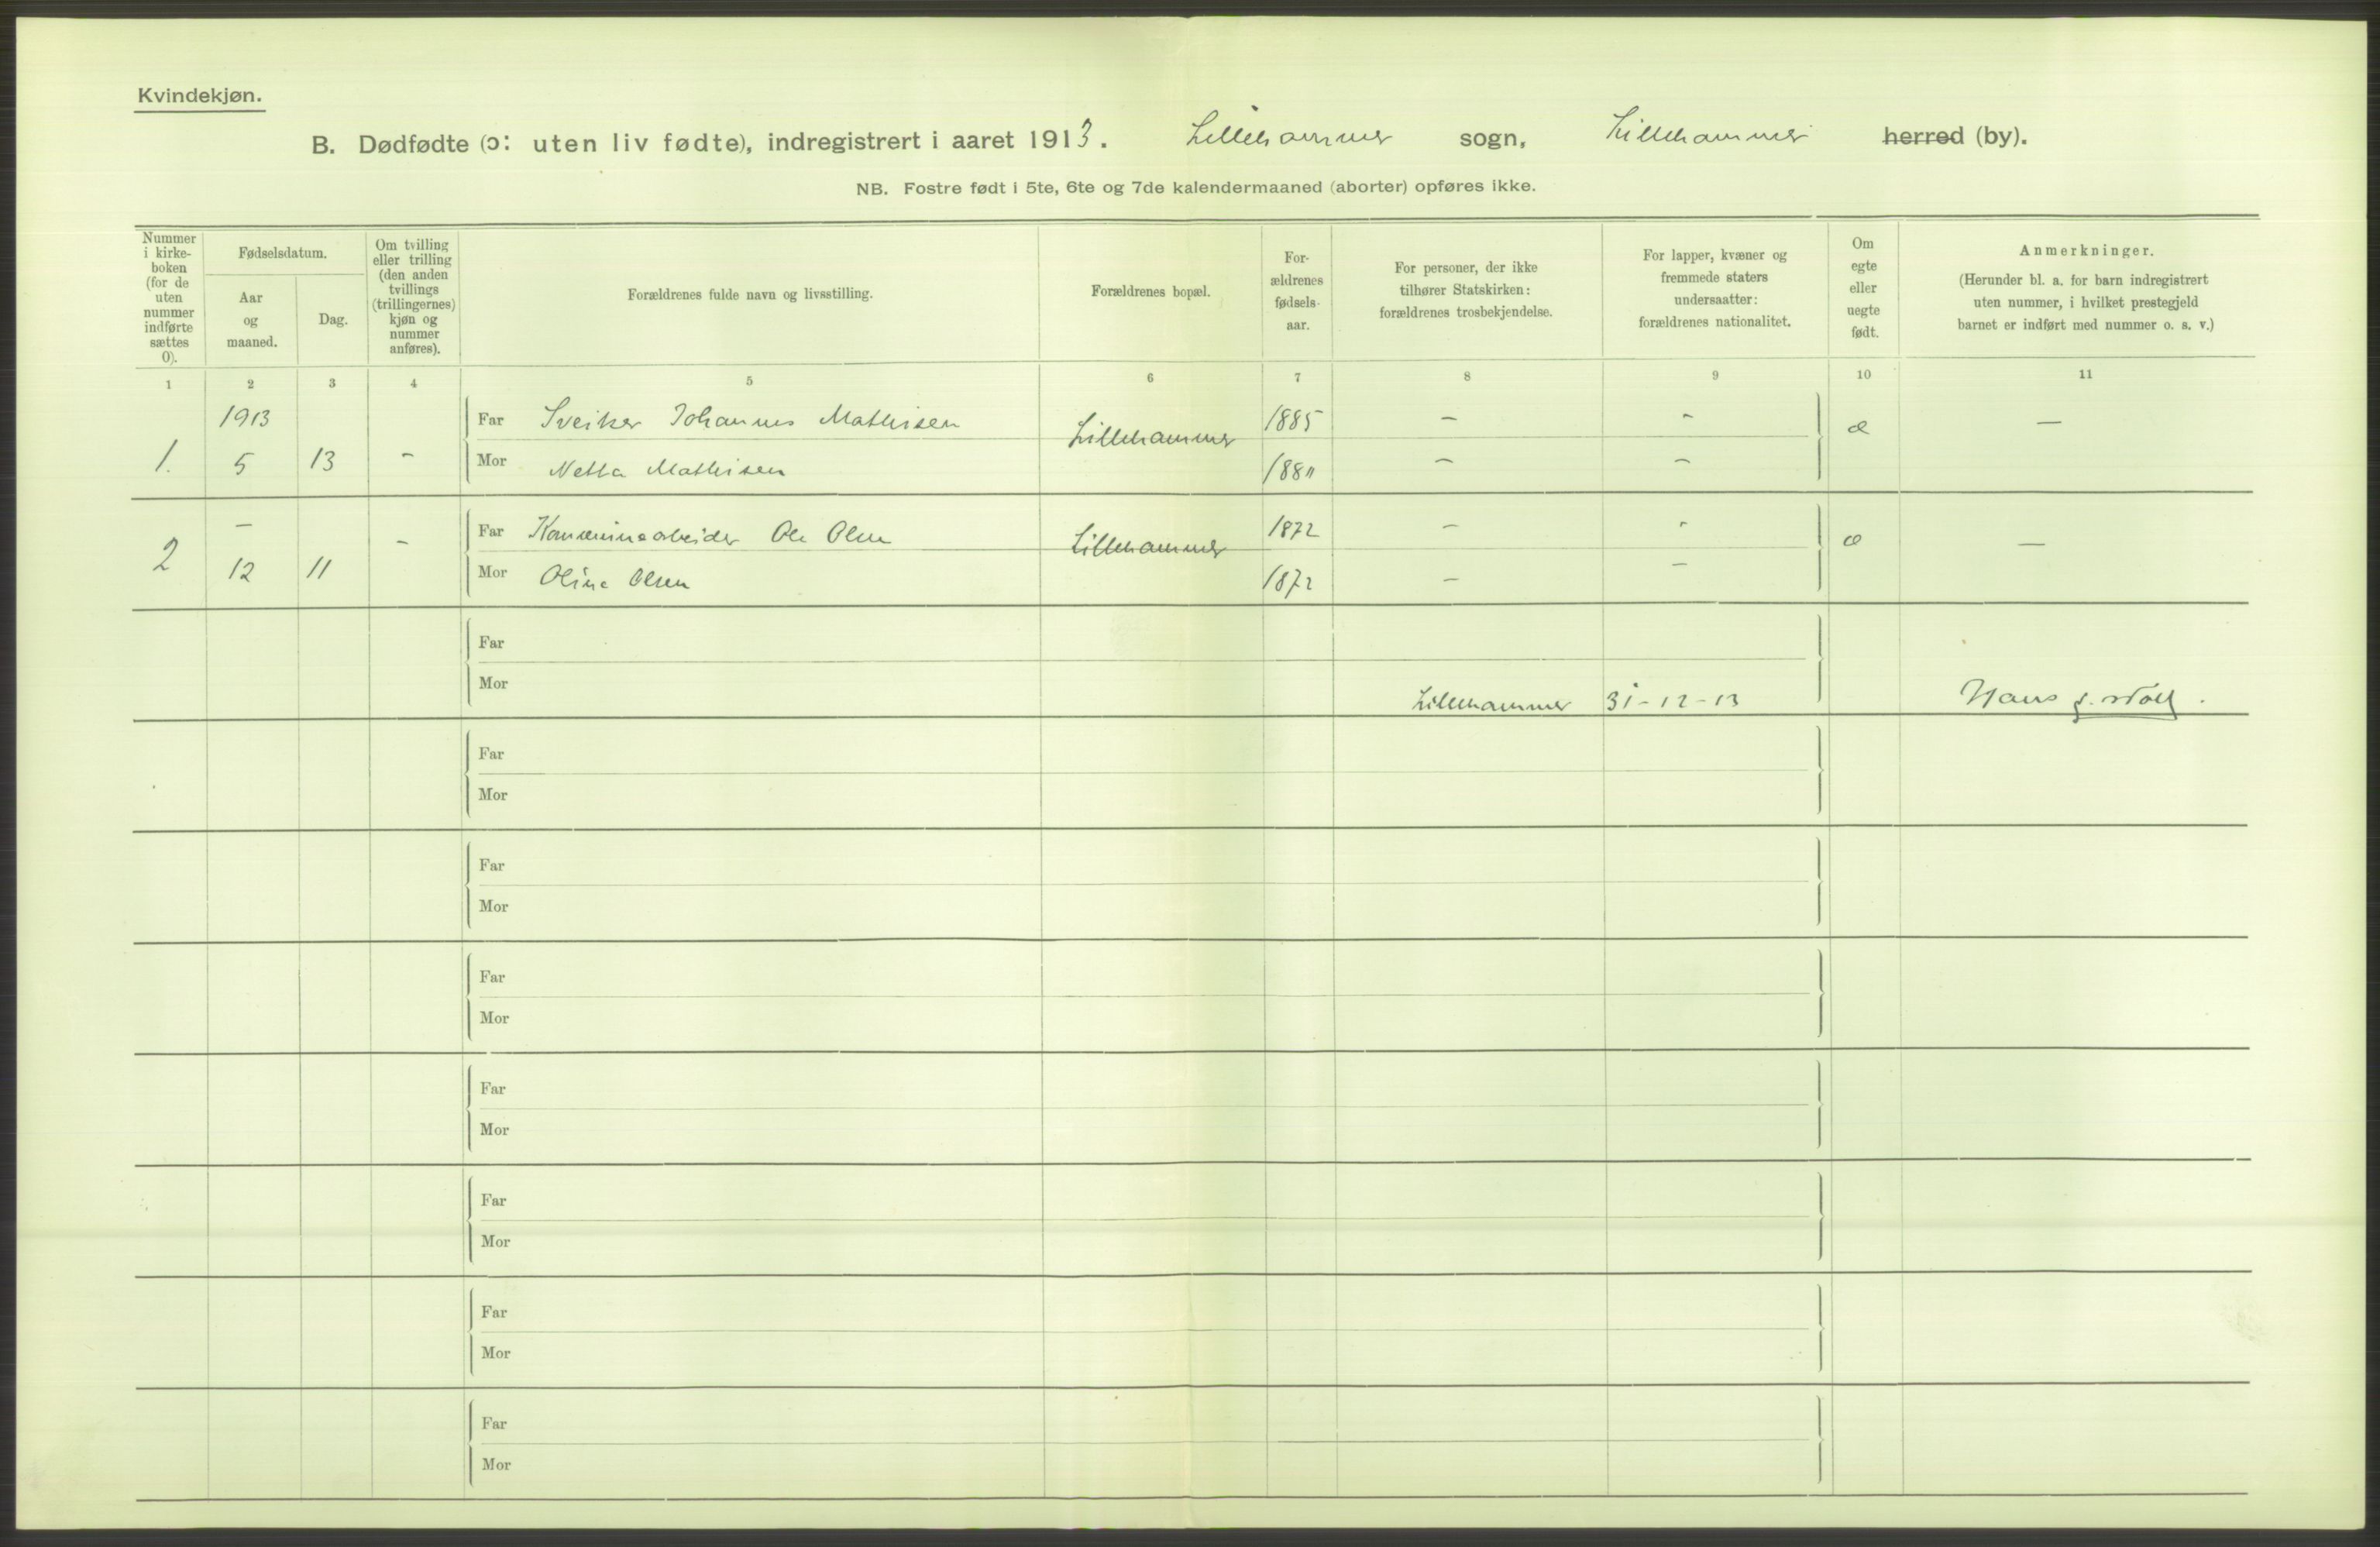 Kvindekjøn.
B. Dødfødte (ɔ: uten liv fødte), indregistrert i aaret 1913. Lillehammer sogn, Lillehammer herred (by).
NB. Fostre født i 5te, 6te og 7de kalendermaaned (aborter) opføres ikke.
Nummer i kirke-boken (for de uten nummer indførte sættes 0).
Fødselsdatum.
Aar og maaned.
Dag.
Om tvilling eller trilling (den anden tvillings (trillingernes) kjøn og nummer anføres).
Forældrenes fulde navn og livsstilling.
Forældrenes bopæl.
For-ældrenes fødsels-aar.
For personer, der ikke tilhører Statskirken: forældrenes trosbekjendelse.
For lapper, kvæner og fremmede staters undersaatter: forældrenes nationalitet.
Om egte eller uegte født.
Anmerkninger.
(Herunder bl. a. for barn indregistrert uten nummer, i hvilket prestegjeld barnet er indført med nummer o. s. v.)
1 2 3 4 5 6 7 8 9 10 11
1913 Far Sveiser Johannes Mathisen Lillehammer 1885 – – –
1. 5 13 – Mor Netta Mathisen 188 – –
– Far arbeider Ole Olsen Lillehammer 1872 – – –
2 12 11 – Mor Oline Olsen 1872 – –
Far
Mor Lillehammer 31-12-13 Hans
Far
Mor
Far
Mor
Far
Mor
Far
Mor
Far
Mor
Far
Mor
Far
Mor